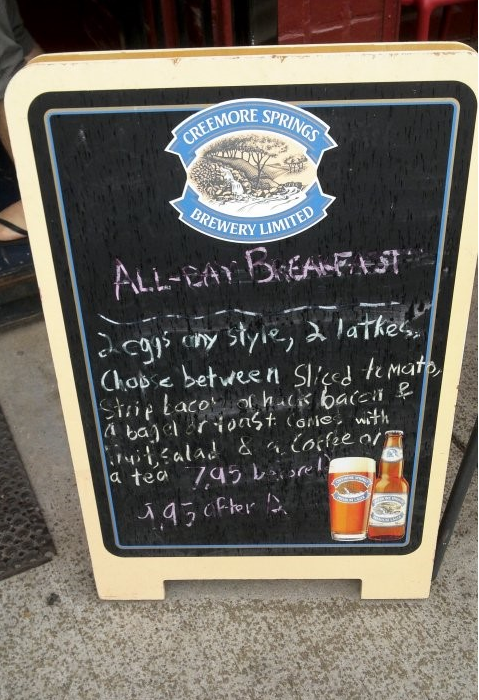 CREEMORE SPRINGS
BREWERY LIMITED
ALL-DAY BREAKFAST
2 eggs any style, 2 latkes,
Choose between Sliced tomato,
Strip bacon or bacon &
A bagel or toast comes with
fruit salad & a Coffee or
a tea 7.95 before 12
9.95 after 12